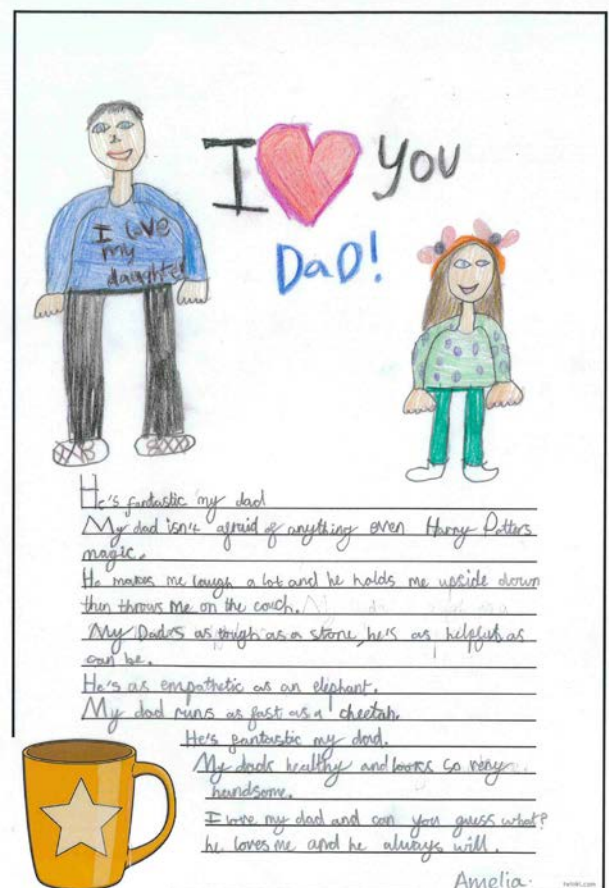 I you
DaD!
I love
my
daughter
He's fantastic my dad
My dad isn't afraid of anything even Harry Potters
magic.
He makes me laugh a lot and he holds me upside down
then throws me on the couch.
My Dad's as tough as a stone, he's as helpful as
can be.
He's as empathetic as an elephant.
My dad runs as fast as a cheetah.
He's fantastic my dad.
My dads healthy and looks so very
handsome.
I love my dad and can you guess what?
he loves me and he always will.
Amelia.
twinkl.com